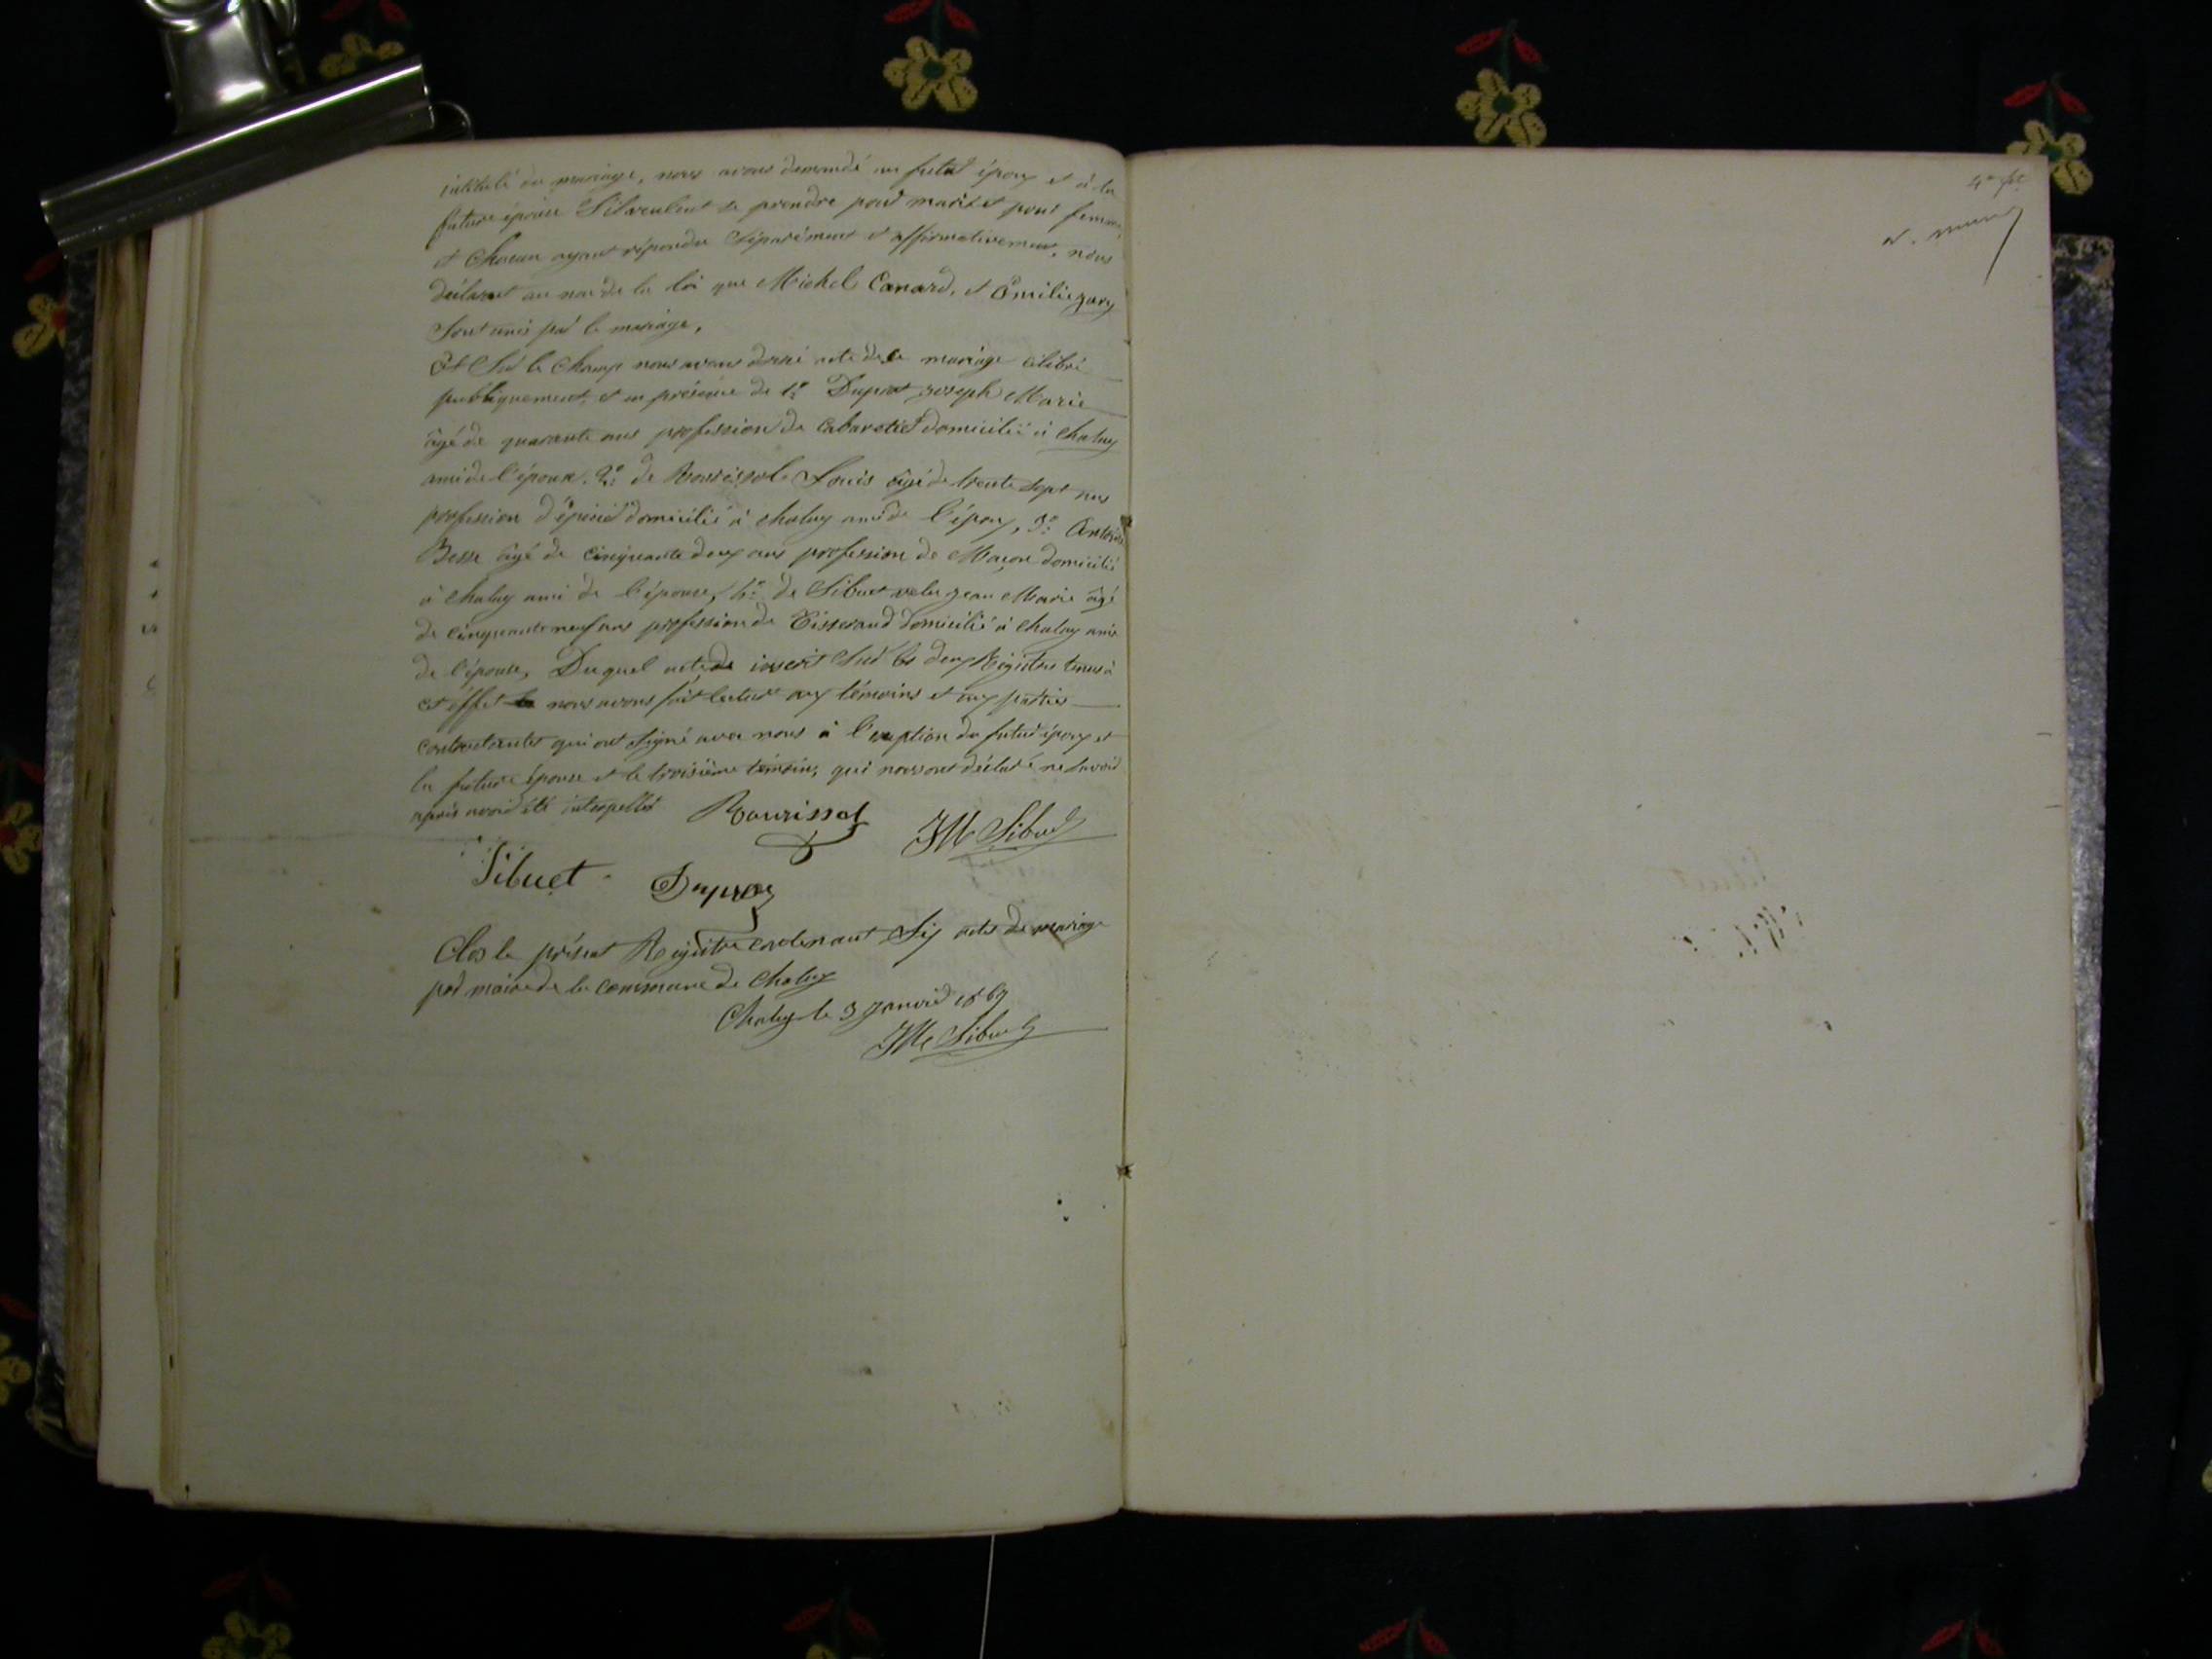 intitulé du mariage, nous avons demandé au futur époux et à la
future épouse S'ils veulent se prendre pour mari et pour femme,
et Chacun ayant répondu Séparément et affirmativement, nous
déclarons au nom de la loi que Michel Canard, et Emilie
Sont unis par le mariage,
Et Sur le Champ nous avons dressé acte de ce mariage célébré
publiquement, et en présence de 1º Duprat joseph Marie
âgé de quarante ans profession de Cabaretier domicilié à Chaluy
ami de l'époux. 2º de Rourissol Louis âgé de trente Sept ans
profession d'épicier domicilié à chaluy ami de l'époux, 3º Antoine
Besse âgé de Cinquante deux ans profession de Maçon domicilié
à chaluy ami de l'épouse, 4º de Sibuet jean Marie âgé
de Cinquante neuf ans profession de Tisserand domicilié à chaluy ami
de l'épouse, Duquel acte inscrit Sur les deux Régistres tenus à
cet éffet nous avons fait lecture aux témoins et aux parties
Contractantes qui ont Signé avec nous à l'exeption du futur époux et
la future épouse et le troisième témoin, qui nous ont déclaré ne Savoir
après avoir été interpellés Rourissol JM Sibuet
Sibuet Duproz
Clos le présent Régistre Contenant Six actes de mariage
par maire de la Commune de Chaluy
Chaluy le 3 Janvier 1869
JM Sibuet
4e ft